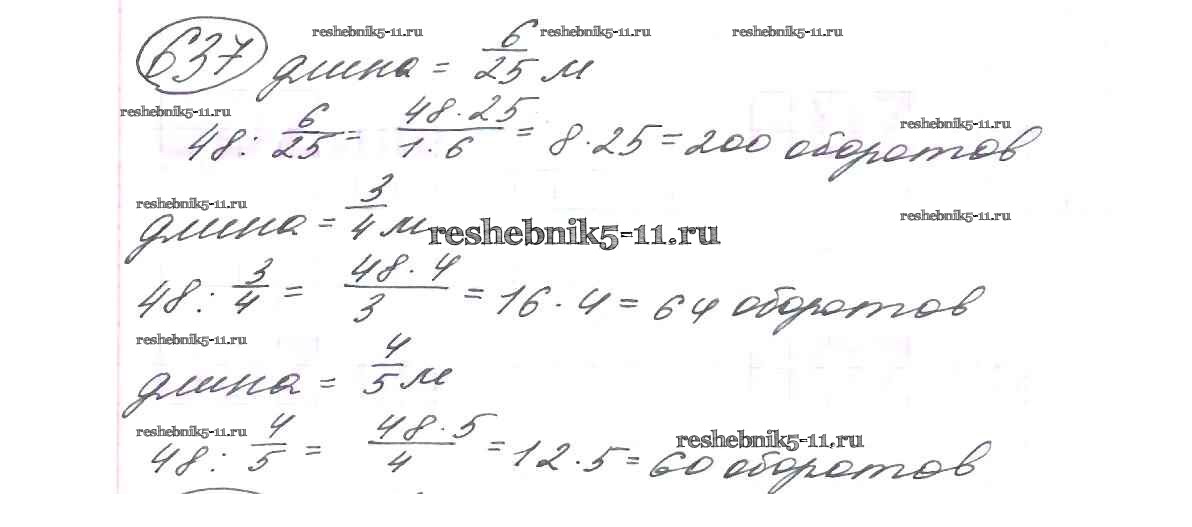 reshebnik5-11.ru reshebnik5-11.ru reshebnik5-11.ru
637 длина = 6/25 м
reshebnik5-11.ru
reshebnik5-11.ru
48 : 6/25 = 48·25/1·6 = 8·25 = 200 оборотов
reshebnik5-11.ru
reshebnik5-11.ru
длина = 3/4 м
reshebnik5-11.ru
48 : 3/4 = 48·4/3 = 16·4 = 64 оборотов
reshebnik5-11.ru
длина = 4/5 м
reshebnik5-11.ru
reshebnik5-11.ru
48 : 4/5 = 48·5/4 = 12·5 = 60 оборотов